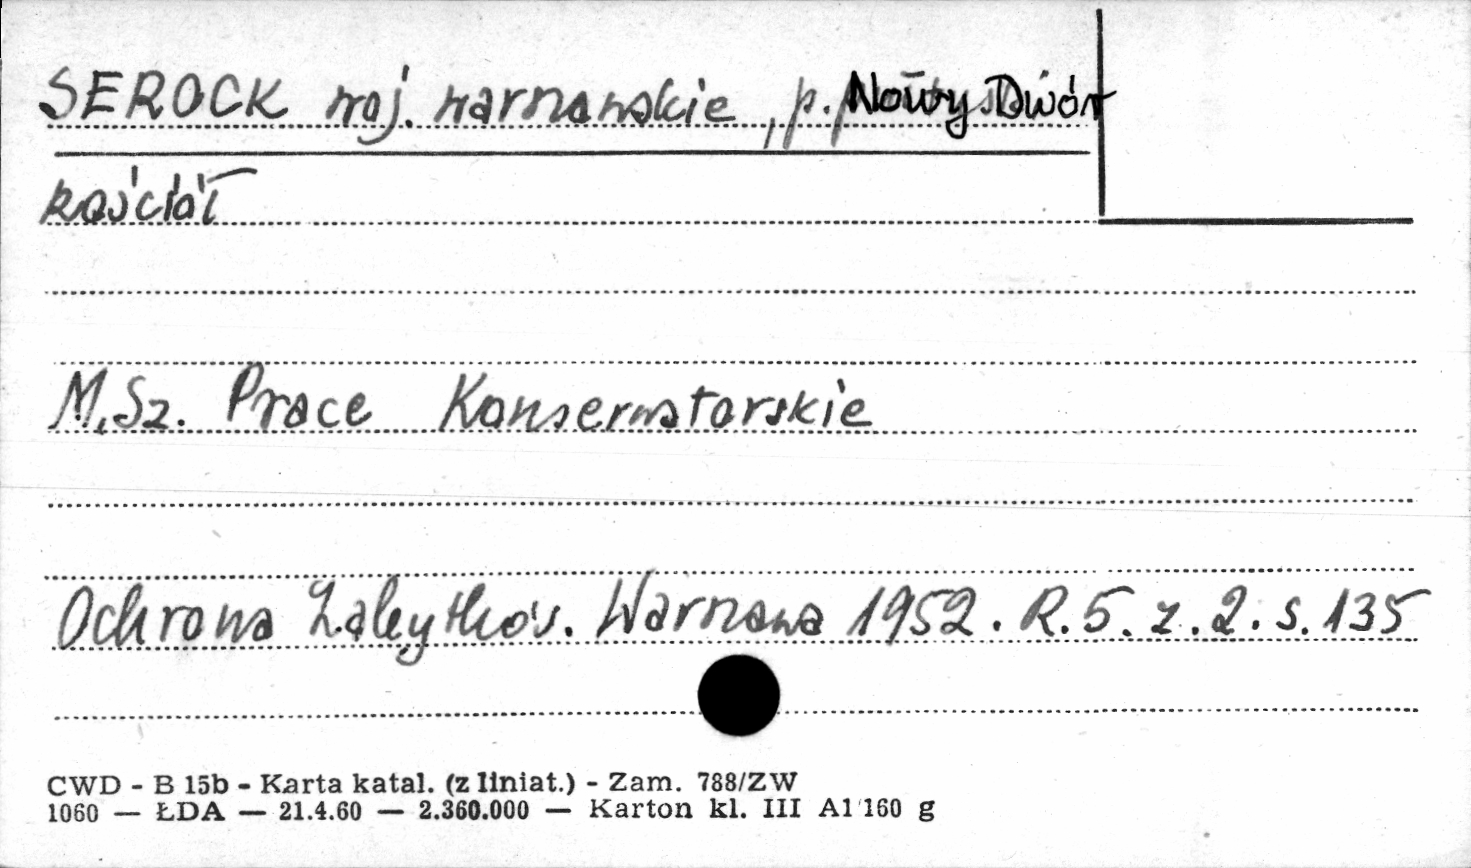 SEROCK woj. warszawskie, p. Nowy Dwór
kościół
M.Sz. Prace Konserwatorskie
Ochrona Zabytków. Warszawa 1952. R.5. z.2. s.135
CWD - B 15b - Karta katal. (z liniat.) - Zam. 788/ZW
1060 — ŁDA — 21.4.60 — 2.360.000 — Karton kl. III A1 160 g